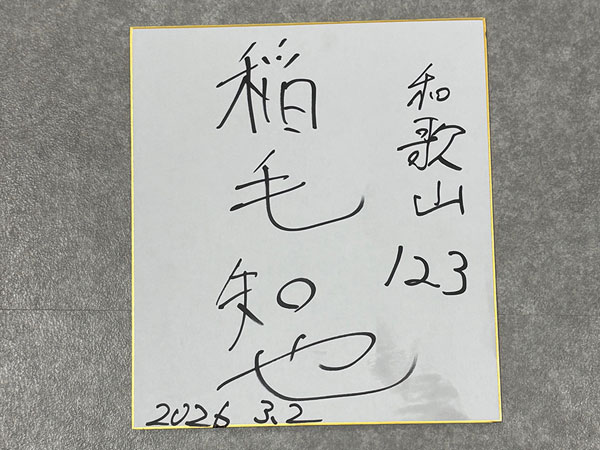 和歌山
123
稲毛
知也
2026 3.2